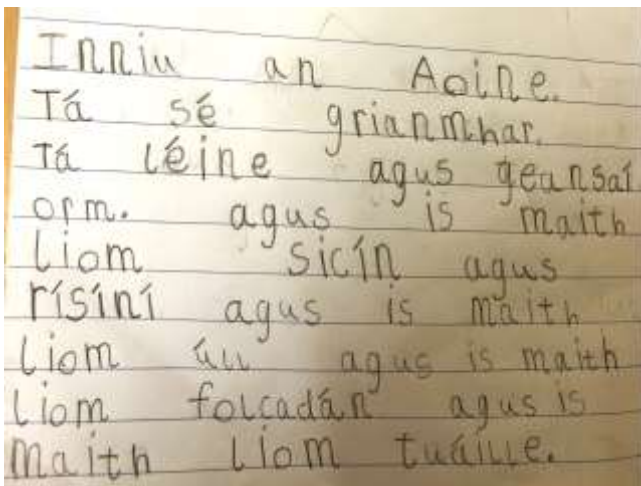 Inniu an Aoine.
Tá sé grianmhar.
Tá léine agus geansaí
orm. agus is maith
liom sicín agus
rísíní agus is maith
liom úll agus is maith
liom folcadán agus is
maith liom tuáille.